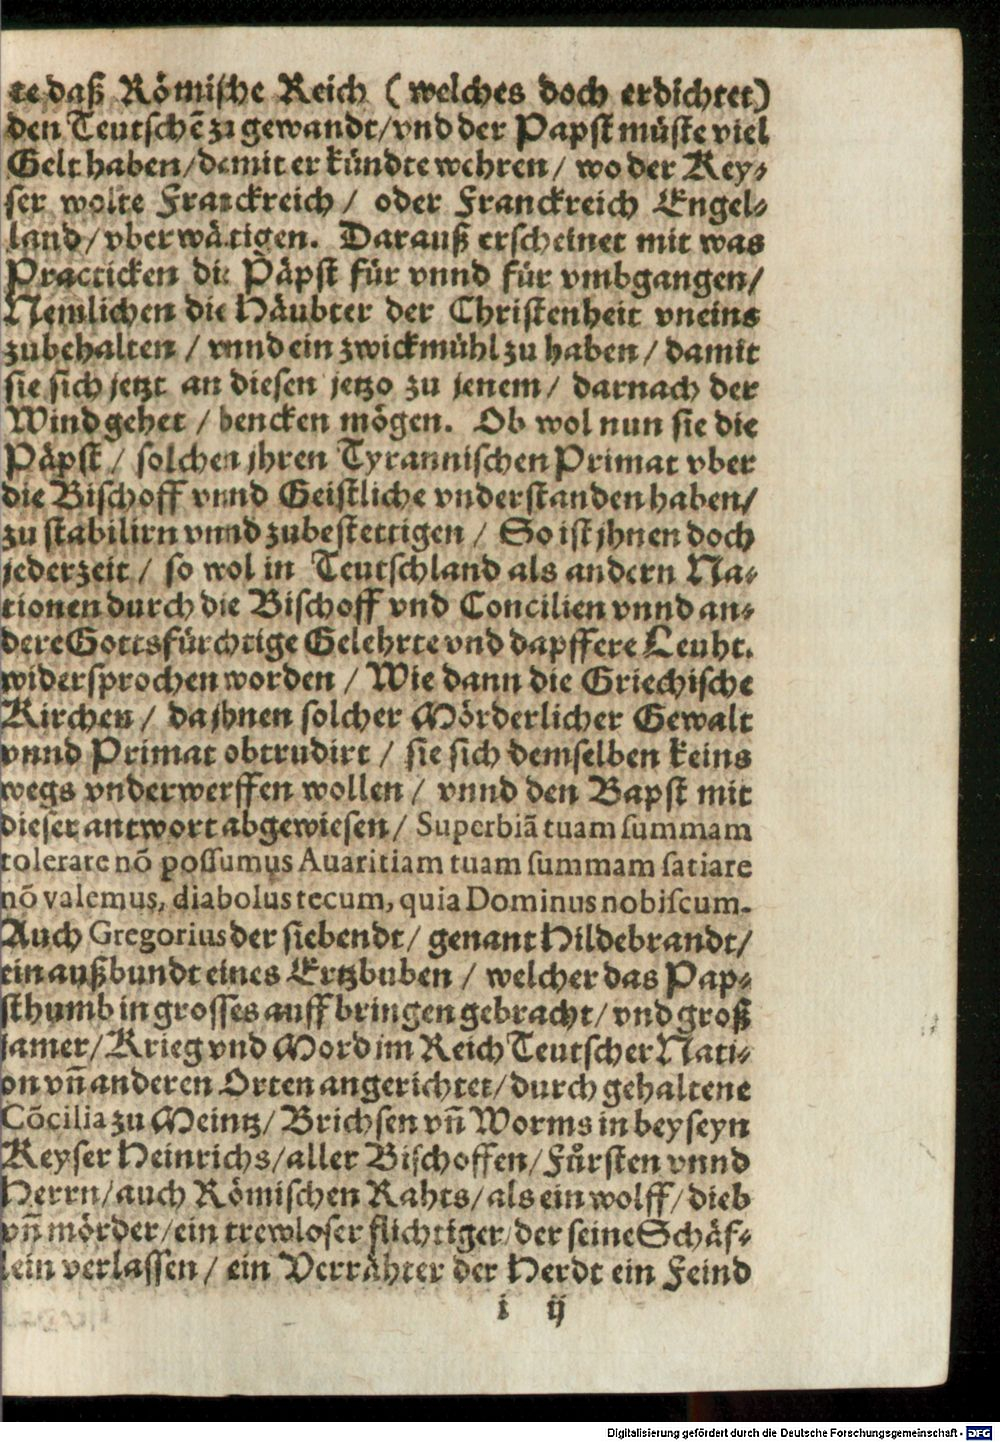 te daß Römische Reich (welches doch erdichtet)
den Teutschẽ zů gewandt/vnd der Papst müste viel
Gelt haben/demit er kündte wehren/ wo der Key-
ser wolte Franckreich/ oder Franckreich Engel-
land/vberwätigen. Darauß erscheinet mit was
Practicken die Päpst für vnnd für vmbgangen/
Nemlichen die Häubter der Christenheit vneins
zubehalten/ vnnd ein zwickmühl zu haben/ damit
sie sich jetzt an diesen jetzo zu jenem/ darnach der
Wind gehet/ hencken mögen. Ob wol nun sie die
Päpst/ solchen jhren Tyrannischen Primat vber
die Bischoff vnnd Geistliche vnderstanden haben/
zu stabilirn vnnd zubestettigen/ So ist jhnen doch
jederzeit/ so wol in Teutschland als andern Na-
tionen durch die Bischoff vnd Concilien vnnd an-
dere Gottsfürchtige Gelehrte vnd dapffere Leuht.
widersprochen worden/ Wie dann die Griechische
Kirchen/ da jhnen solcher Mörderlicher Gewalt
vnnd Primat obtrudirt/ sie sich demselben keins
wegs vnderwerffen wollen/ vnnd den Bapst mit
dieser antwort abgewiesen/ Superbiã tuam summam
tolerare nõ possumus Auaritiam tuam summam satiare
nõ valemus, diabolus tecum, quia Dominus nobiscum.
Auch Gregorius der siebendt/ genant Hildebrandt/
ein außbundt eines Ertzbuben/ welcher das Pap-
sthumb in grosses auffbringen gebracht/ vnd groß
jamer/Krieg vnd Mord im Reich Teutscher Nati-
on vñ anderen Orten angerichtet/durch gehaltene
Cõcilia zu Meintz/ Brichsen vñ Worms in beyseyn
Keyser Heinrichs/aller Bischoffen/Fůrsten vnnd
Herrn/auch Römischen Rahts/als ein wolff/dieb
vñ mörder/ein trewloser flichtiger/der seine Schäf-
lein verlassen/ ein Verrähter der Herdt ein Feind
i ij
Digitalisierung gefördert durch die Deutsche Forschungsgemeinschaft - DFG